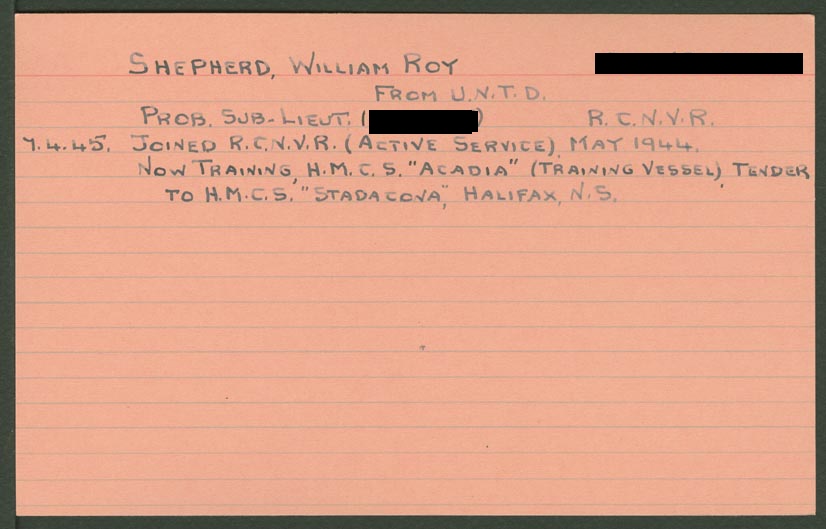 SHEPHERD, WILLIAM ROY
FROM U.N.T.D.
PROB. SUB-LIEUT. ( ) R.C.N.V.R.
7.4.45. JOINED R.C.N.V.R. (ACTIVE SERVICE), MAY 1944.
NOW TRAINING, H.M.C.S. "ACADIA" (TRAINING VESSEL), TENDER
TO H.M.C.S. "STADACONA", HALIFAX, N.S.